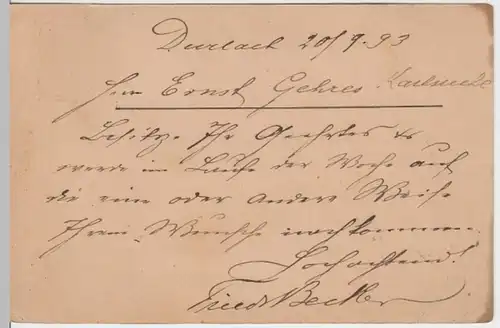 Durlach 20/9.93
Herrn Ernst Gehres Karlsruhe
Besitze Ihr Geehrtes &
werde im Laufe der Woche auf
die eine oder andere Weise
Ihrem Wunsche nachkommen.
Hochachtend!
Friedr Becker